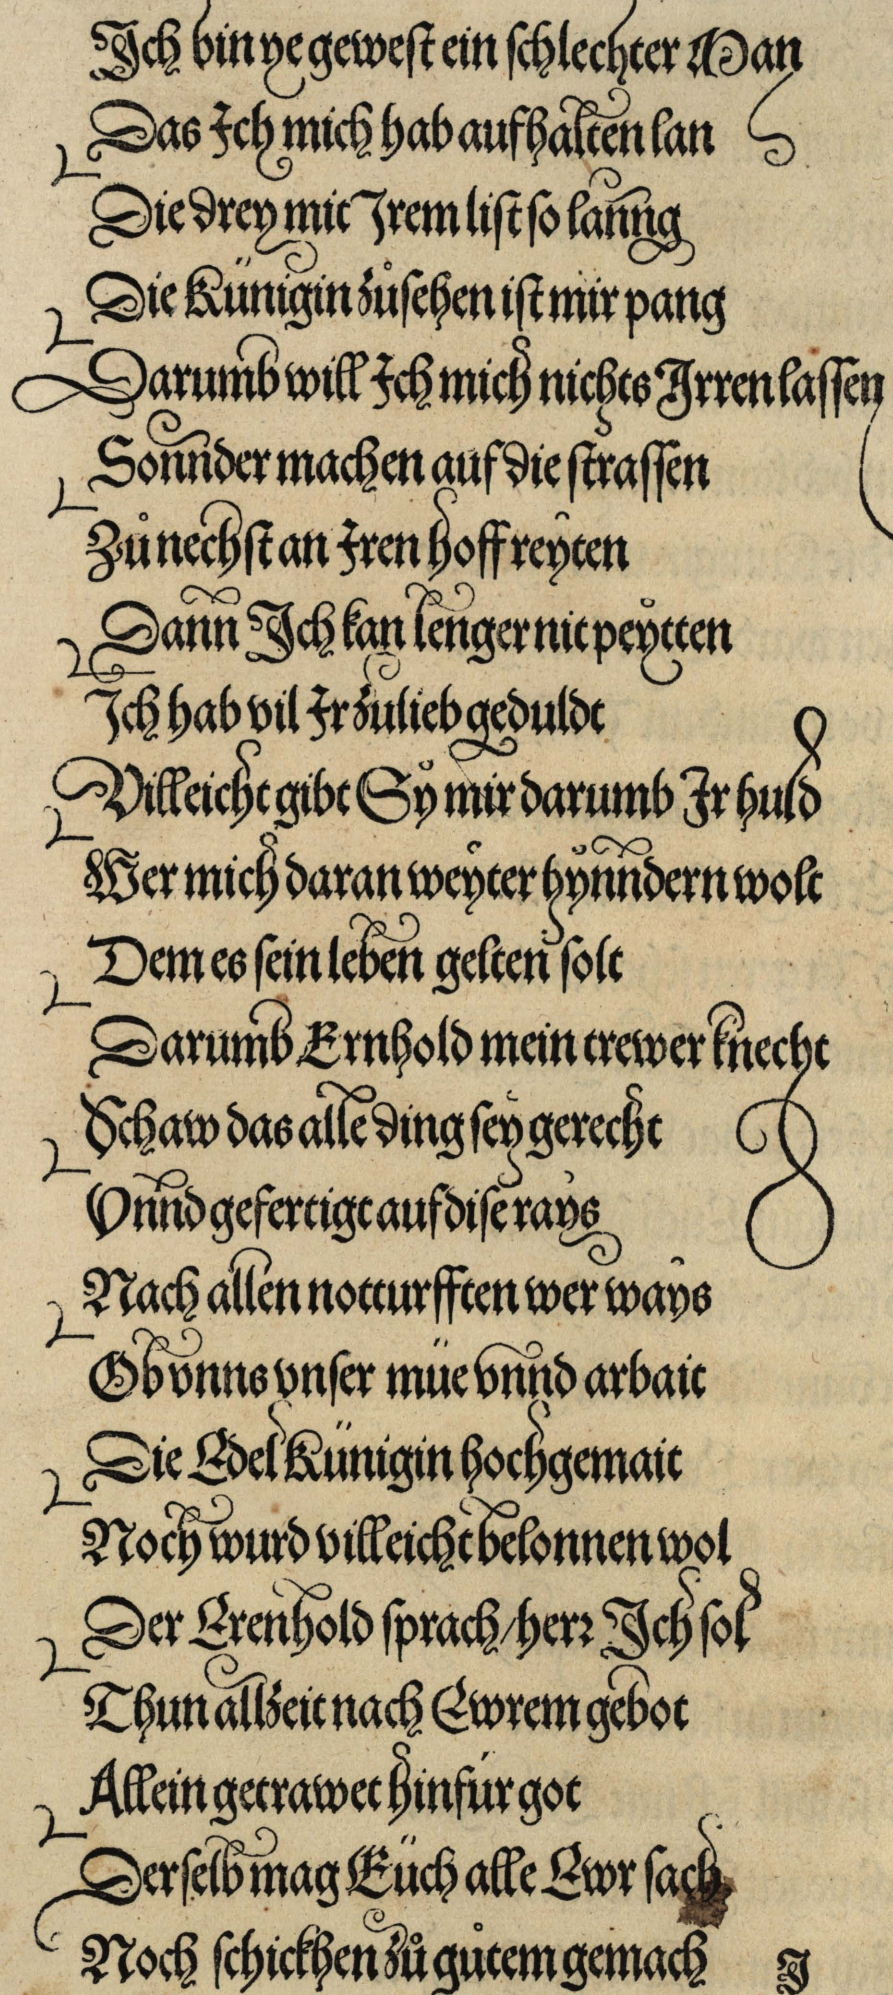 Ich bin ye gewest ein schlechter Man
Das Ich mich hab aufhalten lan
Die drey mit Irem list so lanng
Die Künigin zůsehen ist mir pang
Darumb will Ich mich nichts Irren lassen
Sonnder machen auf die strassen
Zů nechst an Iren hoff reyten
Dann Ich kan lenger nit peytten
Ich hab vil Ir zulieb geduldt
Villeicht gibt Sy mir darumb Ir huld
Wer mich daran weyter hynndern wolt
Dem es sein leben gelten solt
Darumb Ernhold mein trewer knecht
Schaw das alle ding sey gerecht
Vnnd gefertigt auf dise rays
Nach allen notturfften wer ways
Ob vnns vnser müe vnnd arbait
Die Edel Künigin hochgemait
Noch wurd villeicht belonnen wol
Der Erenhold sprach / herr Ich sol
Thun allzeit nach Ewrem gebot
Allein getrawet hinfür got
Derselb mag Eüch alle Ewr sach
Noch schickhen zů gůtem gemach
J